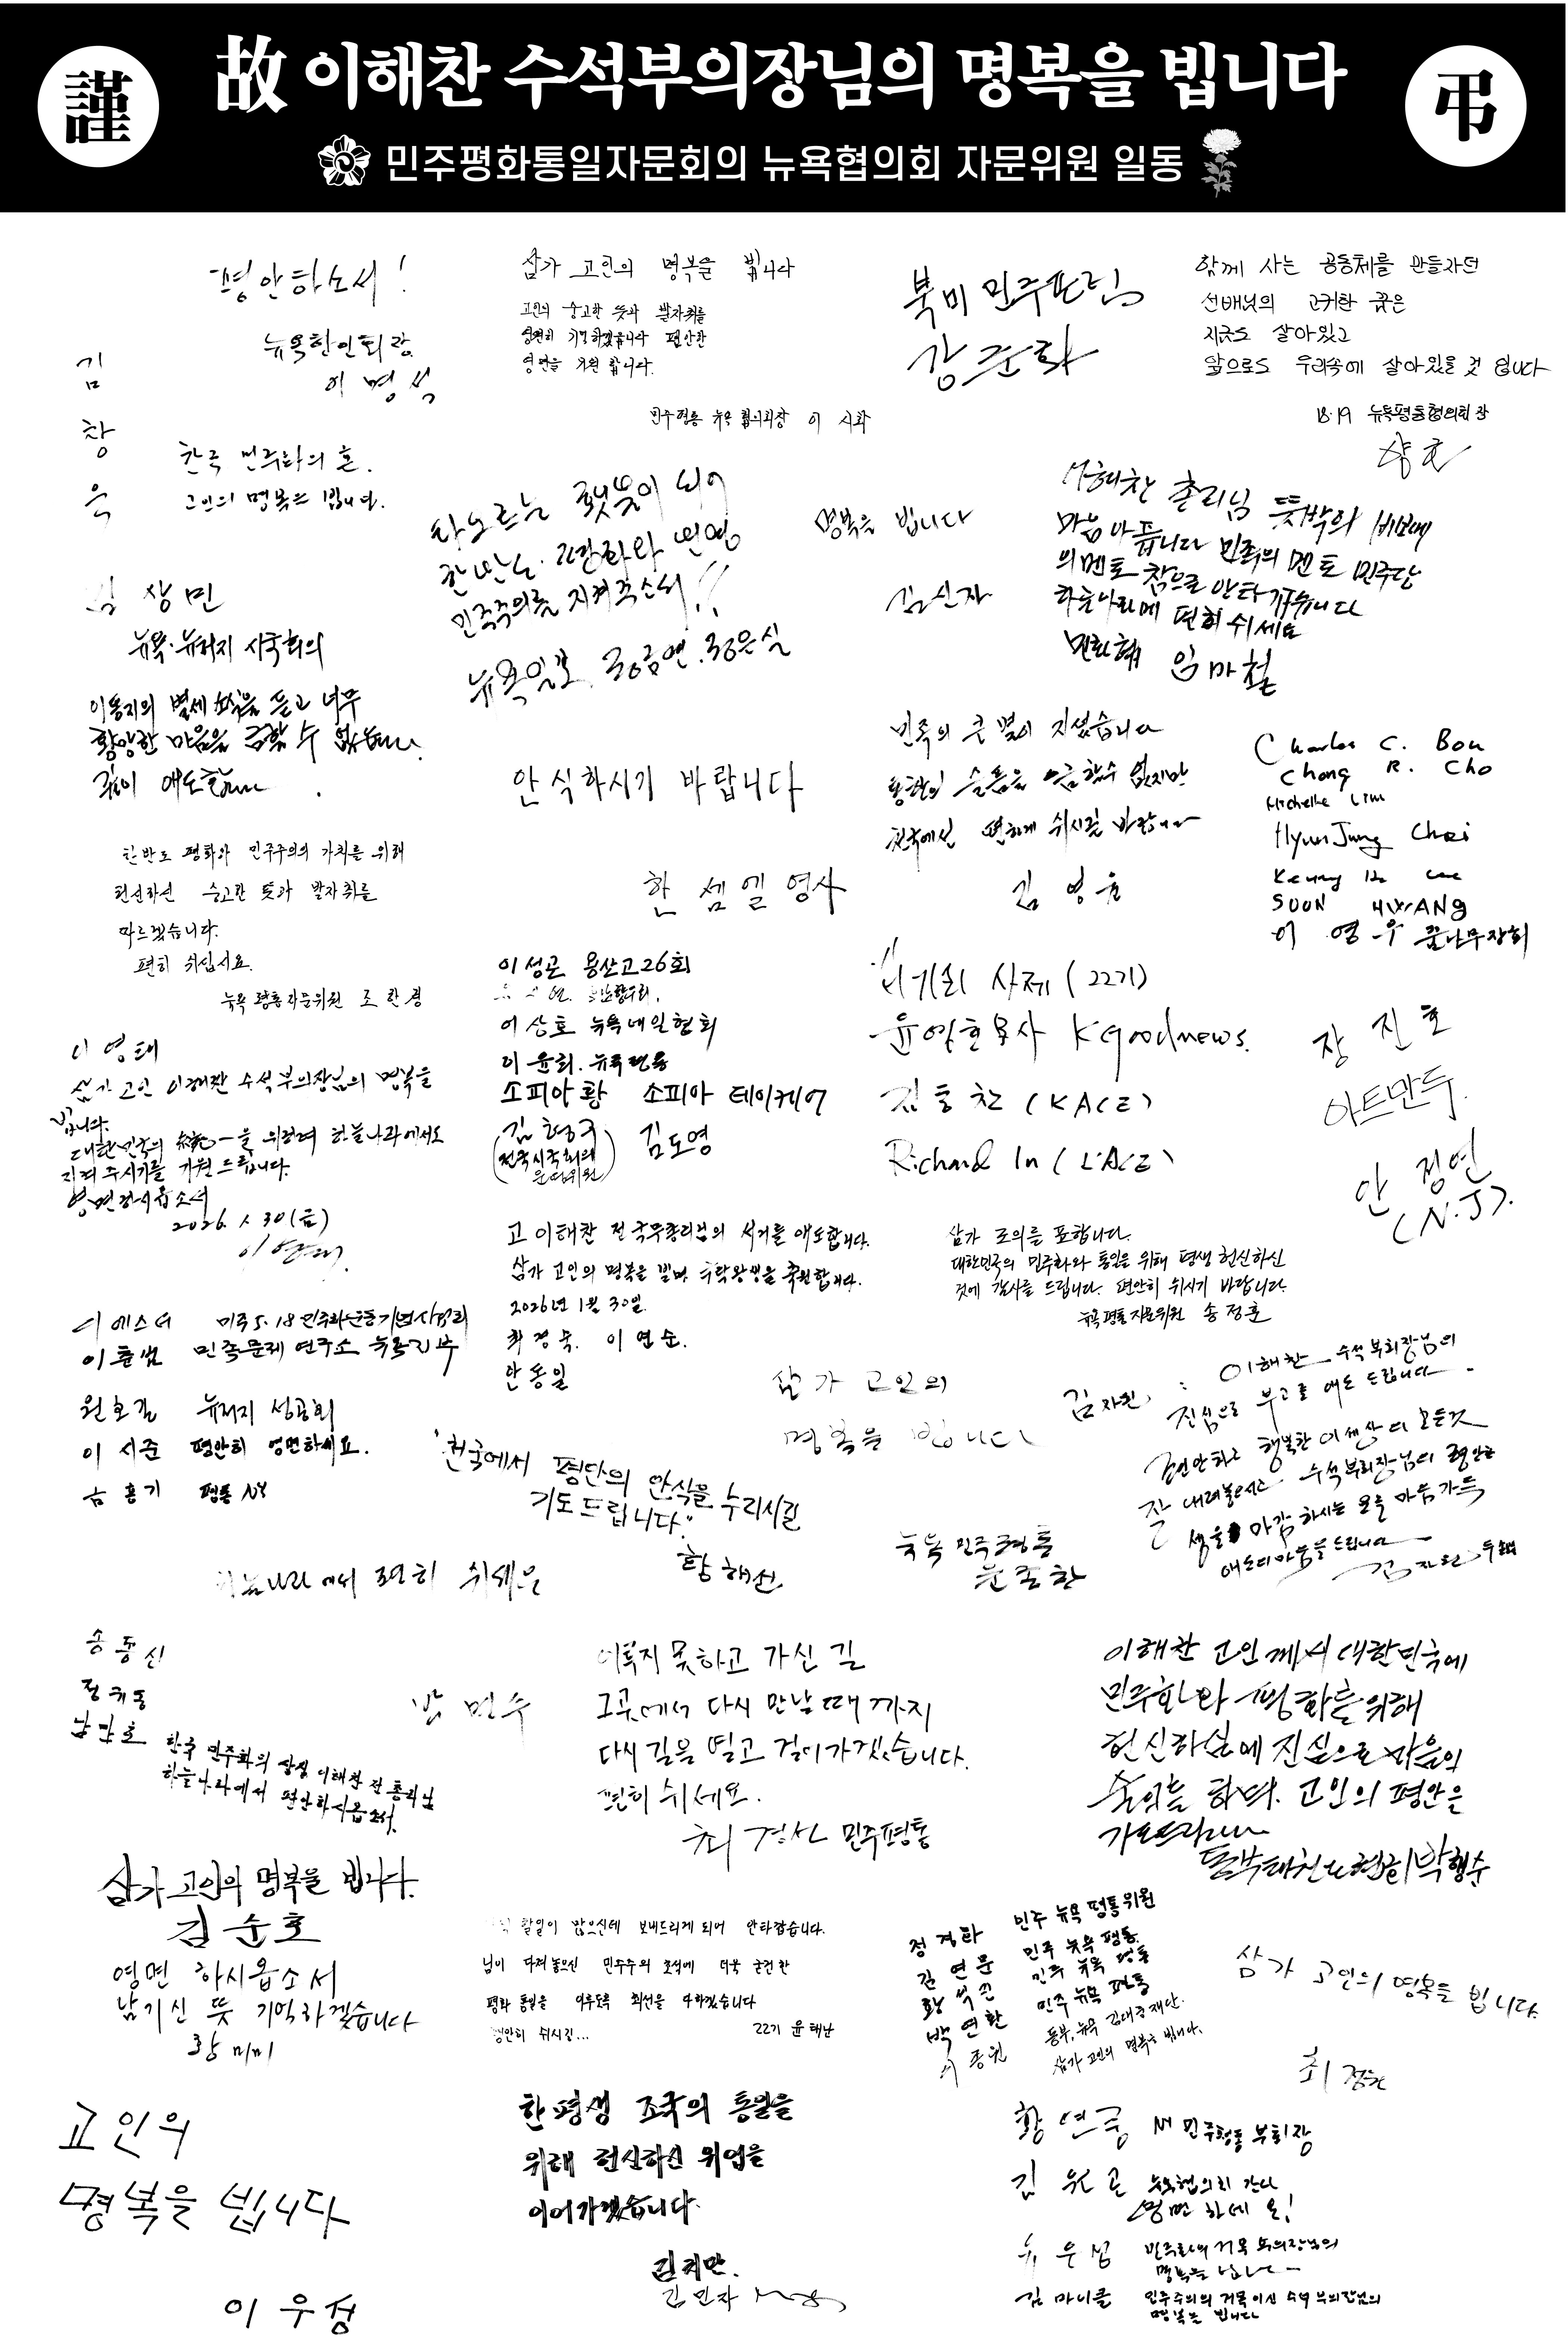 謹
故 이해찬 수석부의장님의 명복을 빕니다
弔
민주평화통일자문회의 뉴욕협의회 자문위원 일동
평안하소서!
뉴욕한인회장
이명석
김창욱
한국 민주화의 혼.
고인의 명복을 빕니다.
삼가 고인의 명복을 빕니다
고인의 숭고한 뜻과 발자취를
영원히 기억하겠습니다 편안한
영면을 기원 합니다.
민주평통 뉴욕 협의회장 이 시화
북미 민주포럼
강준화
함께 사는 공동체를 만들자던
선배님의 고귀한 꿈은
지금도 살아있고
앞으로도 우리속에 살아있을 것 입니다
18·19 뉴욕평통협의회장
타오르는 횃불이 되어
한반도 평화와 번영
민주주의를 지켜주소서!!
뉴욕일보
명복을 빕니다
김신자
이해찬 총리님 뜻밖의 비보에
마음 아픕니다 민족의 멘토 민주당
의 멘토 참으로 안타까웁니다
하늘나라에 편히 쉬세요
민화협 임마철
상민
뉴욕·뉴저지 시국회의
이동지의 별세 소식을 듣고 너무
황망한 마음을 금할 수 없습니다.
깊이 애도합니다.
안식하시기 바랍니다
한 쎔엘 영사
민족의 큰 별이 지셨습니다
통한의 슬픔을 금할수 없지만
천국에선 편하게 쉬시길 바랍니다
김 영윤
Charles C. Bou
Chong R. Cho
Michelle Lim
HyunJung Choi
SOON HWANG
이 영우 꿈나무장회
한반도 평화와 민주주의의 가치를 위해
헌신하신 숭고한 뜻과 발자취를
따르겠습니다.
편히 쉬십시요.
뉴욕 평통자문위원 조한경
이성근 용산고26회
이상호 뉴욕내일협회
이윤희. 뉴욕평통
소피아황 소피아 데이케어
김형구 김도영
(전국시국회의
운영위원)
사제 (22기)
윤영호목사 KGoodnews.
김동찬 (KACE)
Richard In (KACE)
장 진호
아트만두.
안 정연
(N.J).
이영태
삼가 고인 이해찬 수석부의장님의 명복을
빕니다.
대한민국의 統一을 위하여 하늘나라에서도
지켜 주시기를 기원 드립니다.
영면하시옵소서
2026. 1. 30(금)
고 이해찬 전 국무총리님의 서거를 애도합니다.
삼가 고인의 명복을 빌며 극락왕생을 축원합니다.
2026년 1월 30일.
최경숙. 이연순.
안동일
삼가 조의를 표합니다.
대한민국의 민주화와 통일을 위해 평생 헌신하신
것에 감사를 드립니다. 편안히 쉬시기 바랍니다.
뉴욕 평통 자문위원 송정훈
이 에스더 미주 5.18 민주화운동기념사업회
이춘범 민족문제 연구소 뉴욕지부
원호길 뉴저지 성공회
이 서준 평안히 영면하세요.
홍기 평통 NY
삼가 고인의
명복을 빕니다
김자원 : 이해찬 수석부의장님의
진심으로 부고를 애도 드립니다.
"천국에서 평단의 안식을 누리시길
기도드립니다."
황해선
뉴욕 민주평통
하늘나라에서 편히 쉬세요
송동신
정귀동
한국 민주화의 상징 이해찬 전 총리님
하늘나라에서 편안하시옵소서.
방 민수
이루지 못하고 가신 길
그곳에서 다시 만날때 까지
다시 길을 열고 걸어가겠습니다.
편히 쉬세요.
최경산 민주평통
이해찬 고인께서 대한민국에
민주화와 평화를 위해
헌신하심에 진심으로 마음의
고인의 평안을
삼가 고인의 명복을 빕니다.
김순호
영면 하시옵소서
남기신 뜻 기억하겠습니다
황미미
할일이 많으신데 보내드리게 되어 안타깝습니다.
님이 다져 놓으신 민주주의 초석에 더욱 굳건한
평화 통일을 이루도록 최선을 다하겠습니다
편안히 쉬시길...
22기 윤태난
정경화 민주 뉴욕 평통위원
김연문 민주 뉴욕 평통.
황석진 민주 뉴욕 평통
박연환 민주 뉴욕 평통
이종원 동부, 뉴욕 김대중재단.
삼가 고인의 명복을 빕니다.
삼가 고인의 명복을 빕니다.
고인의
명복을 빕니다
이우성
한평생 조국의 통일을
위해 헌신하신 위업을
이어가겠습니다.
김민자
황연중 부회장
김원곤 뉴욕협의회 간사
영면 하세요!
명복을 빕니다
김 마이클 민주주의의 거목이신 수석부의장님의
명복을 빕니다